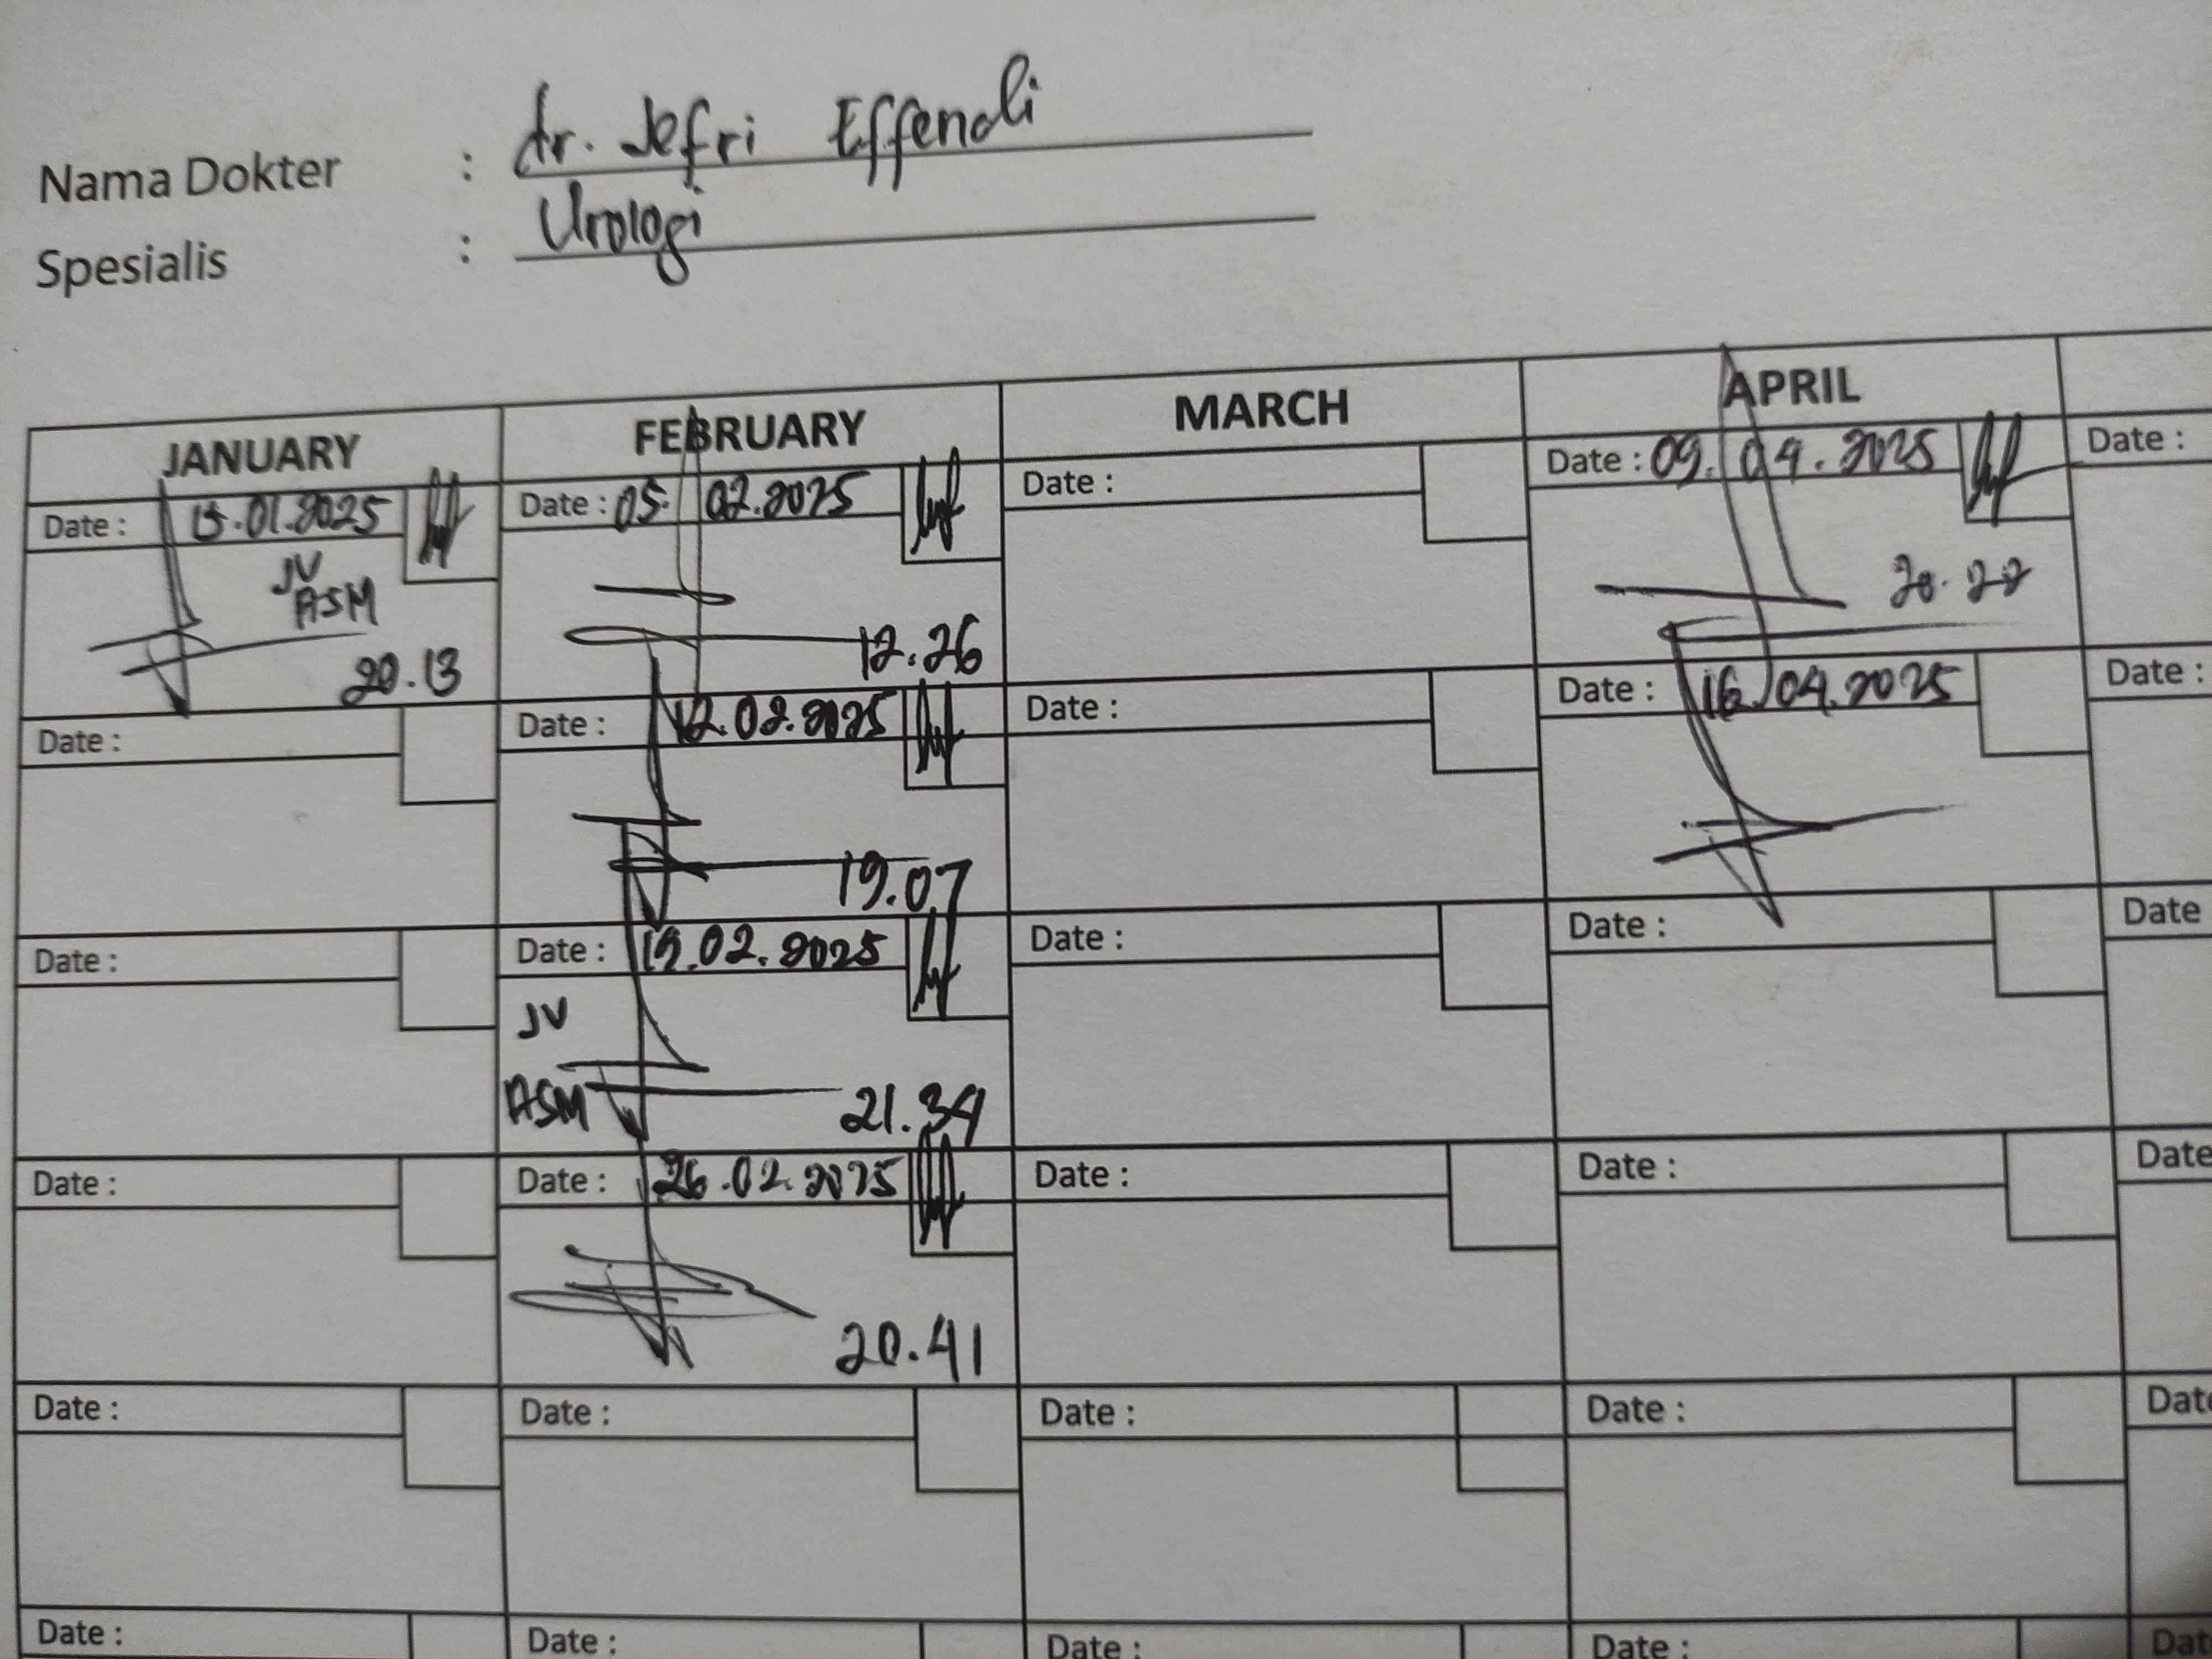 Nama Dokter : dr. Jefri Effendi
Spesialis : Urologi
JANUARY FEBRUARY MARCH APRIL
Date : 15.01.2025 Date : 05. 02.2025 Date : Date : 09. 04.2025 Date :
JV
ASM
20.13 12.26 20.22
Date : Date : 12.02.2025 Date : Date : 16.04.2025 Date :
19.07
Date : Date : 19.02.2025 Date : Date : Date
JV
ASM 21.34
Date : Date : 26.02.2025 Date : Date : Date
20.41
Date : Date : Date : Date : Date
Date : Date : Date : Date : Dat